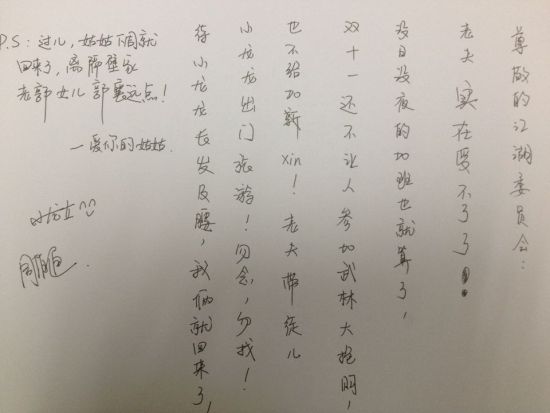 尊敬的江湖委员会：
老夫实在受不了了
没日没夜的加班也就算了，
双十一还不让人参加武林大抢购，
也不给加薪xin！老夫带徒儿
小龙龙出门旅游！勿念，勿找！
待小龙龙长发及腰，我俩就回来了，
P.S：过儿，姑姑下周就
回来了，离隔壁家
老郭女儿郭襄远点！
—爱你的姑姑.